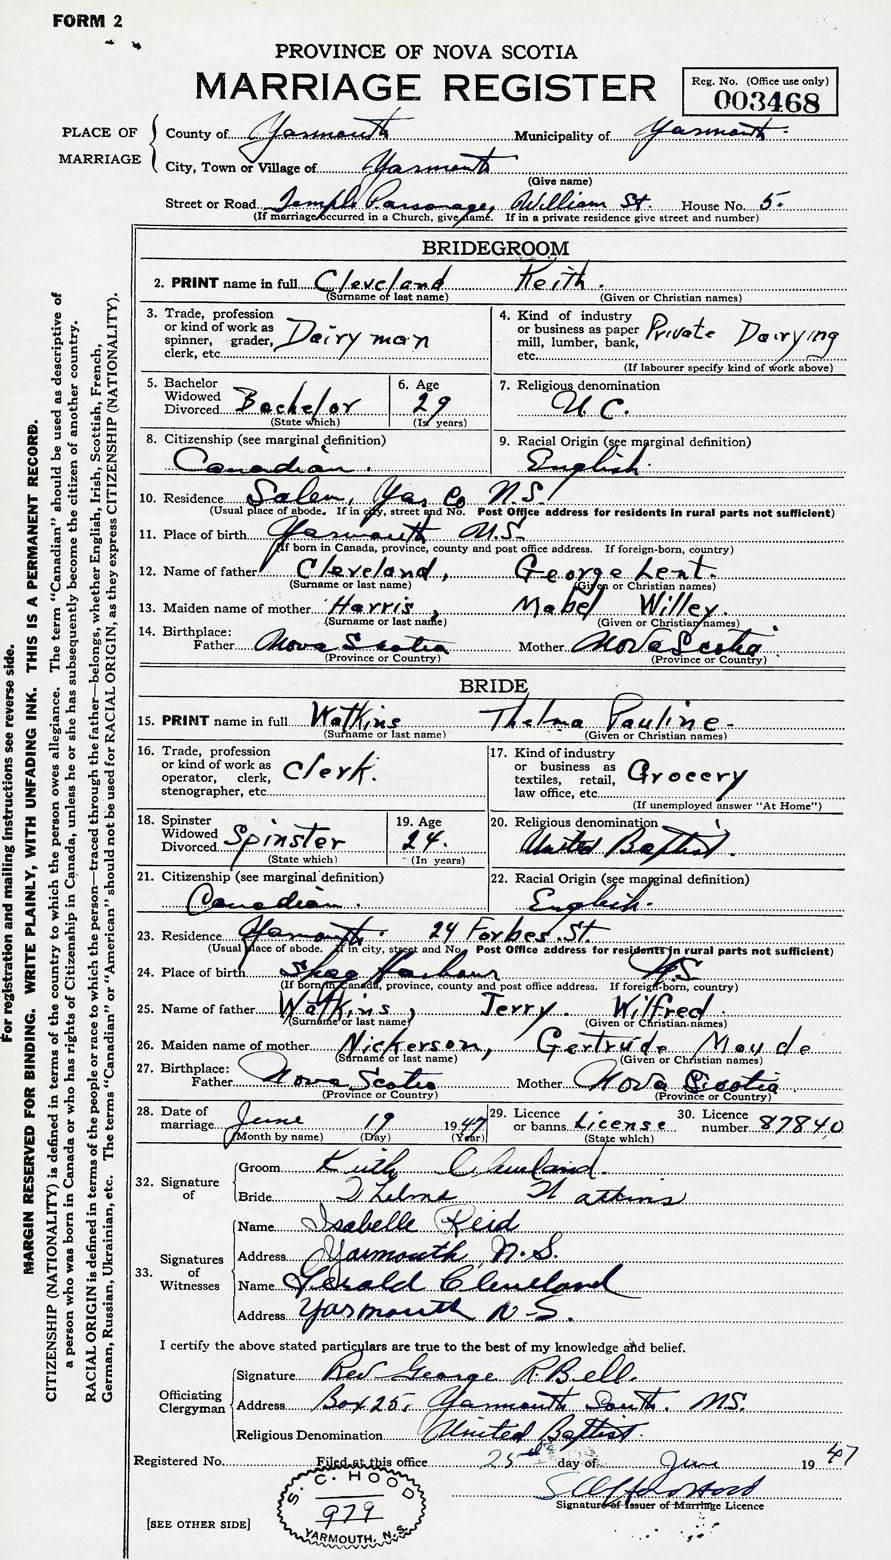 FORM 2
PROVINCE OF NOVA SCOTIA
MARRIAGE REGISTER
Reg. No. (Office use only)
003468
PLACE OF MARRIAGE
County of Yarmouth Municipality of Yarmouth
City, Town or Village of Yarmouth
(Give name)
Street or Road Temple Parsonage, William St. House No. 5.
(If marriage occurred in a Church, give name. If in a private residence give street and number)
BRIDEGROOM
2. PRINT name in full Cleveland Keith.
(Surname or last name) (Given or Christian names)
3. Trade, profession or kind of work as spinner, grader, clerk, etc. Dairyman
4. Kind of industry or business as paper mill, lumber, bank, etc. Private Dairying
(If labourer specify kind of work above)
5. Bachelor Widowed Divorced Bachelor
(State which)
6. Age 29
(In years)
7. Religious denomination U.C.
8. Citizenship (see marginal definition) Canadian.
9. Racial Origin (see marginal definition) English.
10. Residence Salem, Yar. Co N.S.
(Usual place of abode. If in city, street and No. Post Office address for residents in rural parts not sufficient)
11. Place of birth Yarmouth N.S.
(If born in Canada, province, county and post office address. If foreign-born, country)
12. Name of father Cleveland, George Lent.
(Surname or last name) (Given or Christian names)
13. Maiden name of mother Harris, Mabel Willey.
(Surname or last name) (Given or Christian names)
14. Birthplace: Father Nova Scotia Mother Nova Scotia
(Province or Country) (Province or Country)
BRIDE
15. PRINT name in full Watkins Thelma Pauline.
(Surname or last name) (Given or Christian names)
16. Trade, profession or kind of work as operator, clerk, stenographer, etc. Clerk.
17. Kind of industry or business as textiles, retail, law office, etc. Grocery
(If unemployed answer "At Home")
18. Spinster Widowed Divorced Spinster
(State which)
19. Age 24.
(In years)
20. Religious denomination United Baptist.
21. Citizenship (see marginal definition) Canadian.
22. Racial Origin (see marginal definition) English.
23. Residence Yarmouth. 24 Forbes St.
(Usual place of abode. If in city, street and No. Post Office address for residents in rural parts not sufficient)
24. Place of birth Shag Harbour N.S
(If born in Canada, province, county and post office address. If foreign-born, country)
25. Name of father Watkins, Jerry. Wilfred.
(Surname or last name) (Given or Christian names)
26. Maiden name of mother Nickerson, Gertrude Maude
(Surname or last name) (Given or Christian names)
27. Birthplace: Father Nova Scotia Mother Nova Scotia
(Province or Country) (Province or Country)
28. Date of marriage June 19 1947
(Month by name) (Day) (Year)
29. Licence or banns License
(State which)
30. Licence number 87840
32. Signature of
Groom Keith Cleveland.
Bride Thelma Watkins
33. Signatures of Witnesses
Name Isabelle Reid
Address Yarmouth, N.S.
Name Gerald Cleveland
Address Yarmouth N S.
I certify the above stated particulars are true to the best of my knowledge and belief.
Officiating Clergyman
Signature Rev George R. Bell.
Address Box 25, Yarmouth South. N.S.
Religious Denomination United Baptist.
Registered No. Filed at this office 25th day of June 1947
Signature of Issuer of Marriage Licence
S. C. HOOD
979
YARMOUTH, N.S.
[SEE OTHER SIDE]
For registration and mailing instructions see reverse side.
MARGIN RESERVED FOR BINDING. WRITE PLAINLY, WITH UNFADING INK. THIS IS A PERMANENT RECORD.
CITIZENSHIP (NATIONALITY) is defined in terms of the country to which the person owes allegiance. The term "Canadian" should be used as descriptive of
a person who was born in Canada or who has rights of Citizenship in Canada, unless he or she has subsequently become the citizen of another country.
RACIAL ORIGIN is defined in terms of the people or race to which the person—traced through the father—belongs, whether English, Irish, Scottish, French,
German, Russian, Ukrainian, etc. The terms "Canadian" or "American" should not be used for RACIAL ORIGIN, as they express CITIZENSHIP (NATIONALITY).